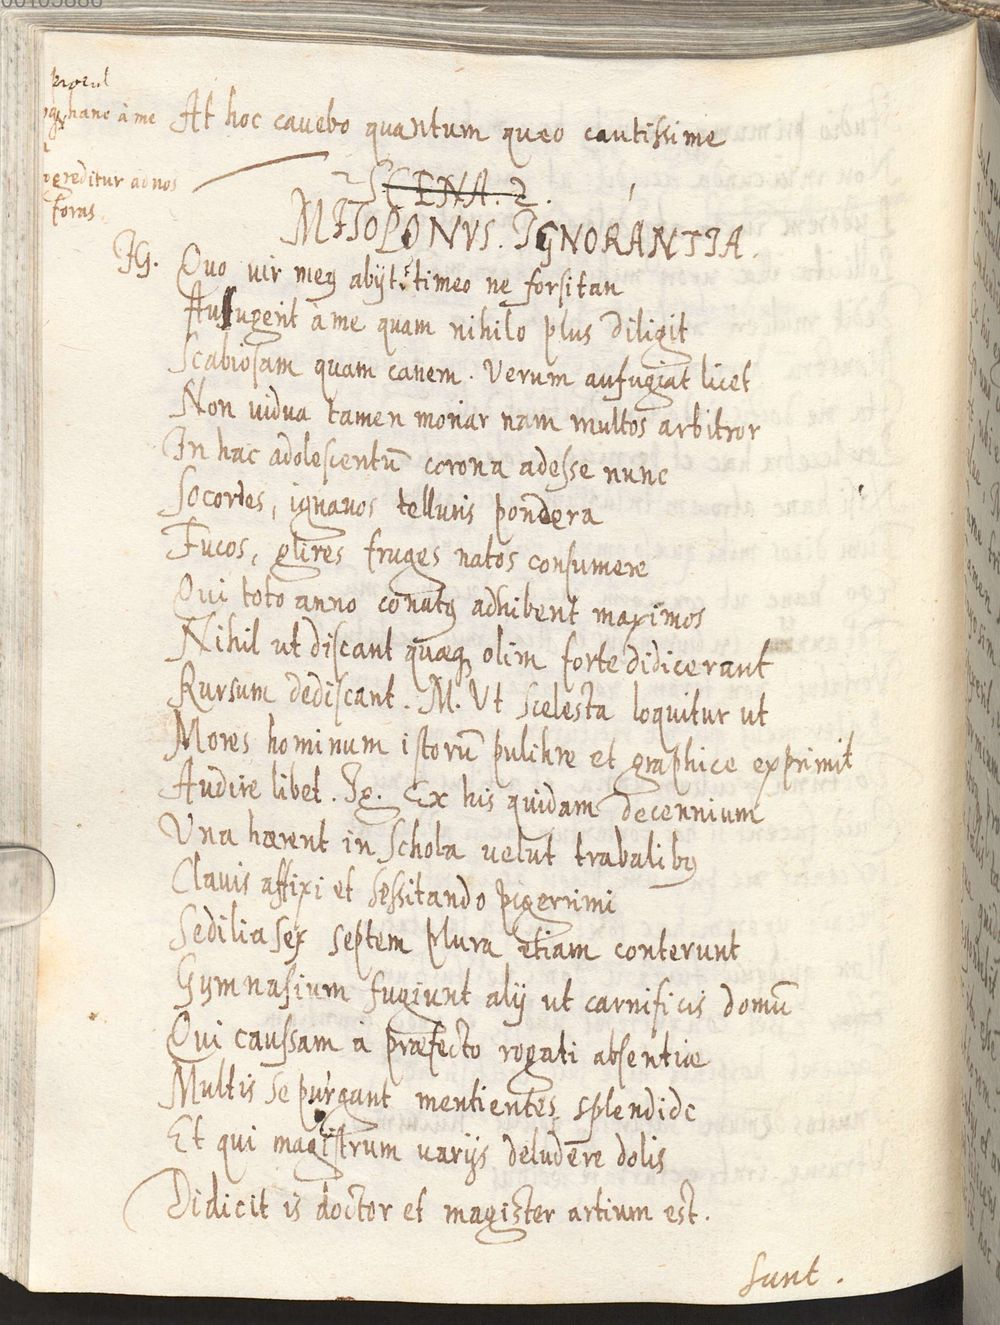 procul
hanc à me
At hoc cavebo quantum queo cautissime
greditur ad nos
foras
SCENA. 2.
MISOPONVS. IGNORANTIA.
IG. Quo vir meus abijt? timeo ne forsitan
Aufugerit à me quam nihilo plus diligit
Scabiosam quam canem. Verum aufugiat licet
Non vidua tamen moriar nam multos arbitror
In hac adolescentū corona adesse nunc
Socordes, ignavos telluris pondera
Fucos, glires fruges natos consumere
Qui toto anno conatus adhibent maximos
Nihil ut discant quæq; olim forte didicerant
Rursum dediscant. M. Ut scelesta loquitur ut
Mores hominum istorū pulchre et graphice exprimit
Audire libet. Ig. Ex his quidam decennium
Una hærent in Schola velut trabalibus
Clavis affixi et sessitando pigerrimi
Sedilia sex septem plura etiam conterunt
Gymnasium fugiunt alij ut carnificis domū
Qui caussam a præfecto rogati absentiæ
Multis se purgant mentientes splendide
Et qui magistrum varijs deludere dolis
Didicit is doctor et magister artium est.
Sunt.